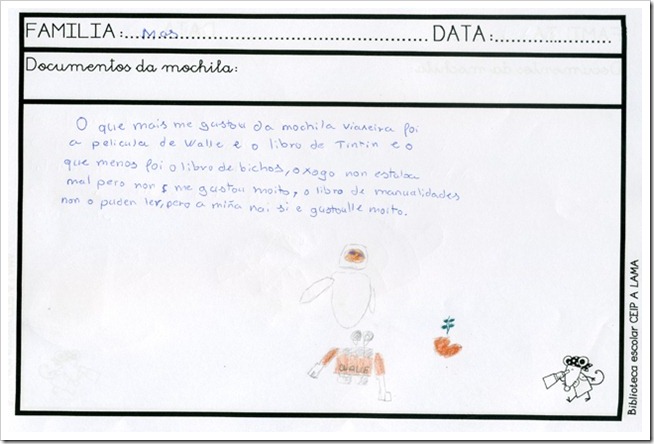 FAMILIA:... Mas ... DATA:...
Documentos da mochila:
O que mais me gustou da mochila viaxeira foi
a pelicula de Walle e o libro de Tintin e o
que menos foi o libro de bichos, o xogo non estaba
mal pero non me gustou moito, o libro de manualidades
non o puden ler, pero a miña nai si e gustoulle moito.
Biblioteca escolar CEIP A LAMA